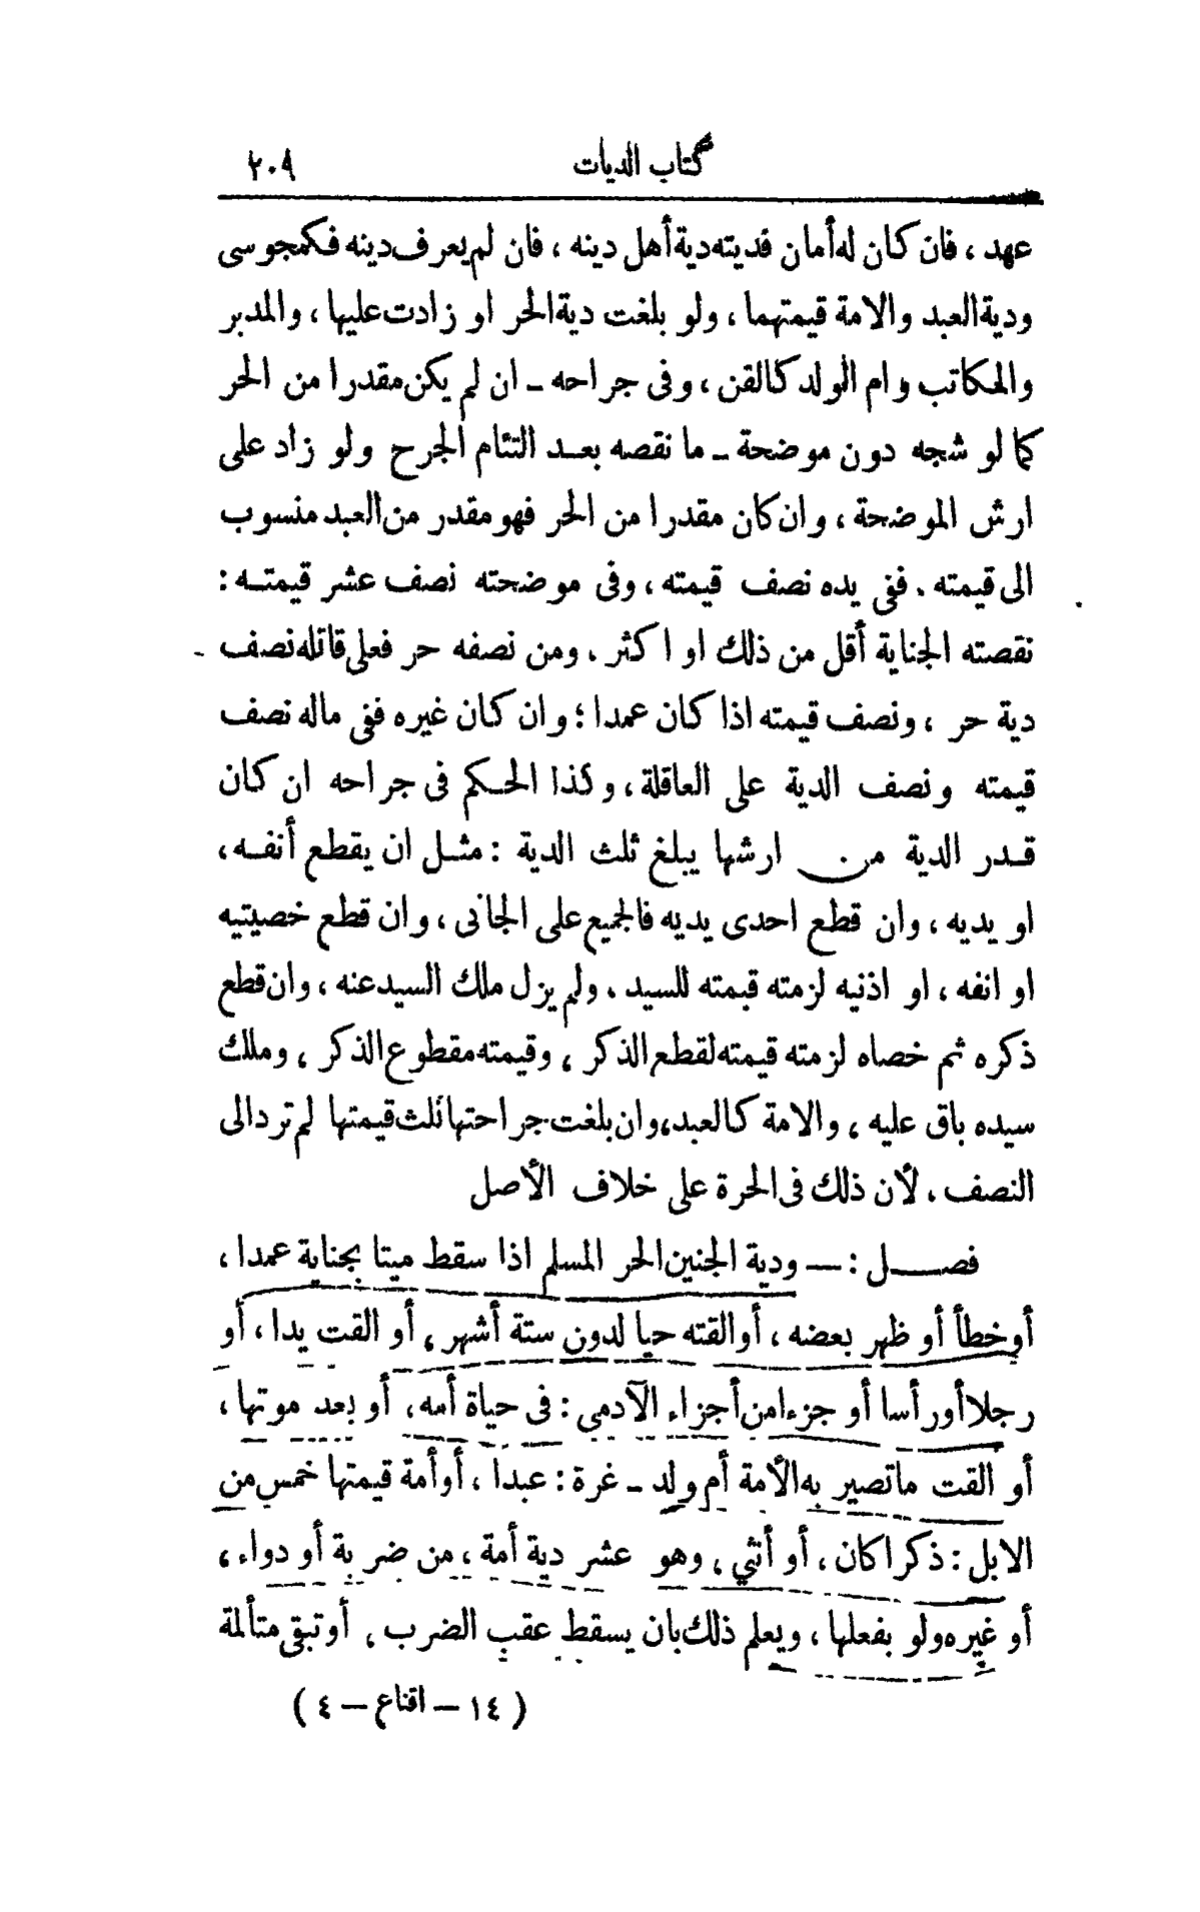 كتاب الديات ٢٠٩
عهد ، فان كان له أمان فديته دية أهل دينه ، فان لم يعرف دينه فكمجوسى
ودية العبد والامة قيمتهما ، ولو بلغت دية الحر او زادت عليها ، والمدبر
والمكاتب وام الولد كالقن ، وفى جراحه ــ ان لم يكن مقدرا من الحر
كما لو شجه دون موضحة ــ ما نقصه بعد التئام الجرح ولو زاد على
ارش الموضحة ، وان كان مقدرا من الحر فهو مقدر من العبد منسوب
الى قيمته . ففى يده نصف قيمته ، وفى موضحته نصف عشر قيمته :
نقصته الجناية أقل من ذلك او اكثر . ومن نصفه حر فعلى قاتله نصف
دية حر ، ونصف قيمته اذا كان عمدا ؛ وان كان غيره ففى ماله نصف
قيمته ونصف الدية على العاقلة ، وكذا الحكم فى جراحه ان كان
قدر الدية من ارشها يبلغ ثلث الدية : مثل ان يقطع أنفه ،
او يديه ، وان قطع احدى يديه فالجميع على الجانى ، وان قطع خصيتيه
او انفه ، او اذنيه لزمته قيمته للسيد . ولم يزل ملك السيد عنه ، وان قطع
ذكره ثم خصاه لزمته قيمته لقطع الذكر ، وقيمته مقطوع الذكر ، وملك
سيده باق عليه ، والامة كالعبد، وان بلغت جراحتها ثلث قيمتها لم ترد الى
النصف . لأن ذلك فى الحرة على خلاف الأصل
فصل : ــ ودية الجنين الحر المسلم اذا سقط ميتا بجناية عمدا ،
أو خطأ أو ظهر بعضه ، أو القته حيا لدون ستة أشهر ، أو القت يدا ، أو
رجلا أو رأسا أو جزءا من أجزاء الآدمى : فى حياة أمه، أو بعد موتها ،
أو القت ما تصير به الأمة أم ولد ــ غرة : عبدا ، أو أمة قيمتها خمس من
الابل : ذكرا كان ، أو أنثى ، وهو عشر دية أمة ، من ضربة أو دواء ،
أو غيره ولو بفعلها ، ويعلم ذلك بان يسقط عقب الضرب ، أو تبقى متألمة
( ١٤ — اقناع — ٤ )